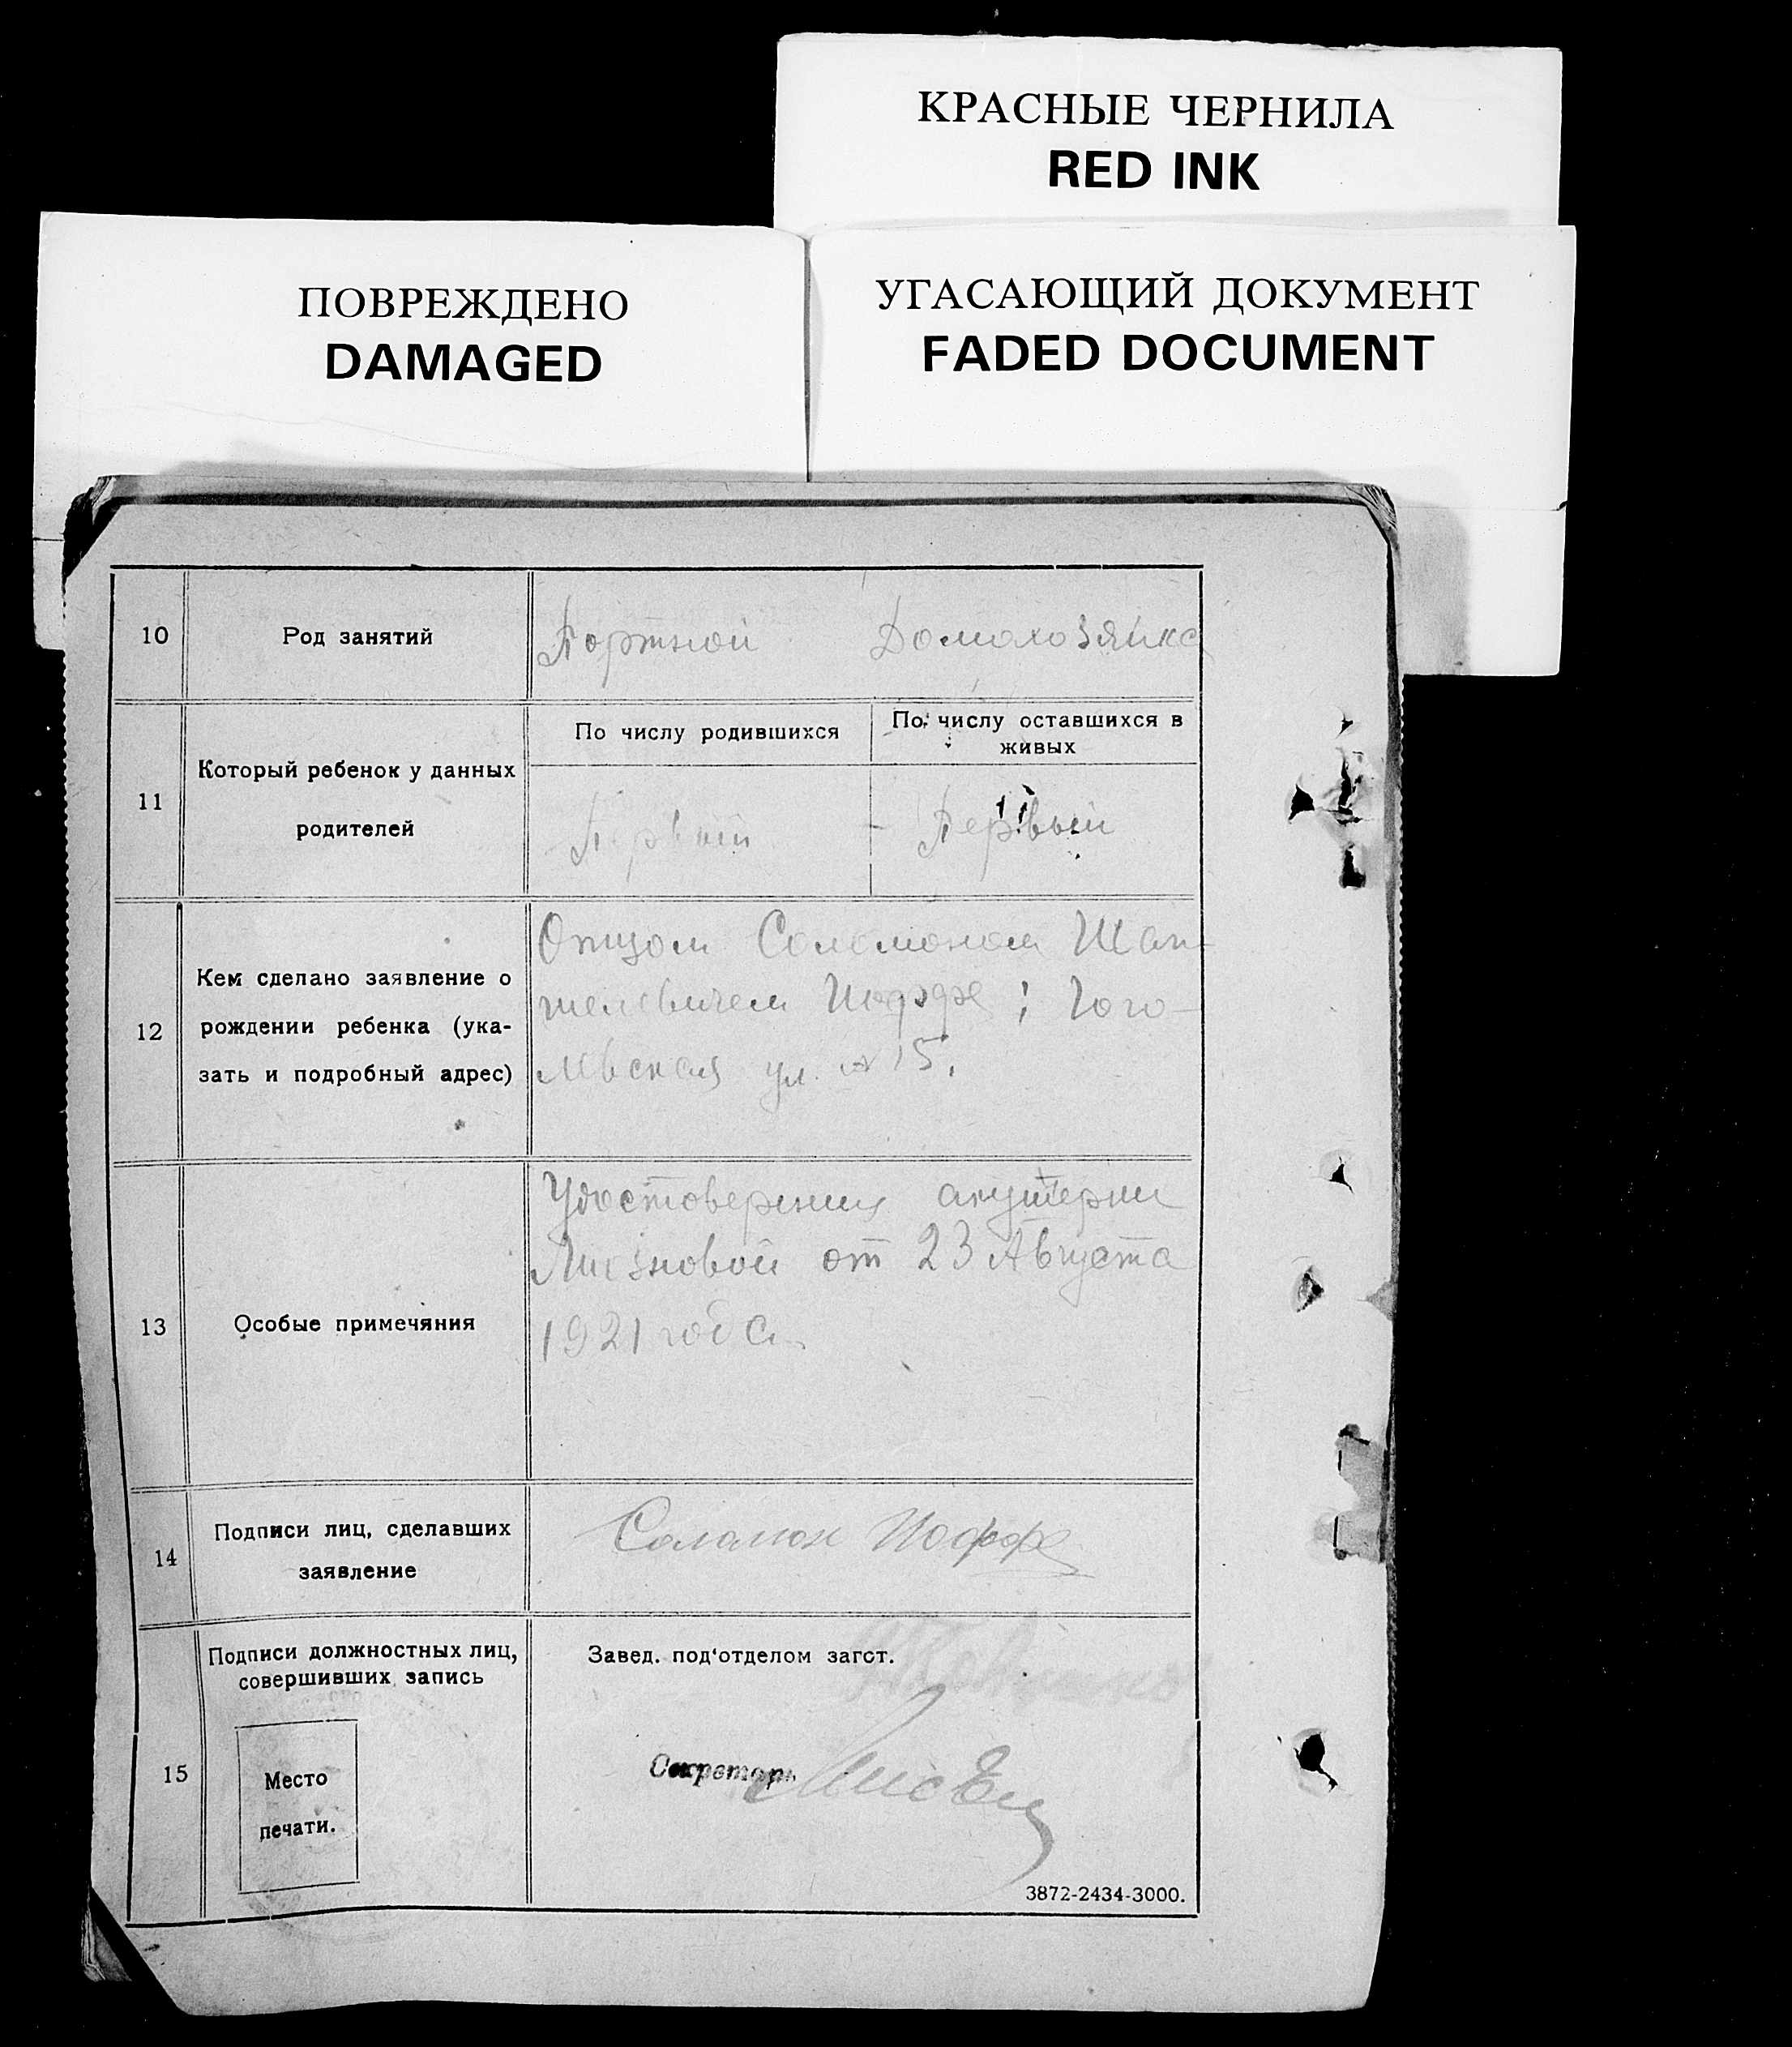 КРАСНЫЕ ЧЕРНИЛА
RED INK
ПОВРЕЖДЕНО
DAMAGED
УГАСАЮЩИЙ ДОКУМЕНТ
FADED DOCUMENT
10 Род занятий Портной Домохозяйка
11 Который ребенок у данных
родителей
По числу родившихся
По числу оставшихся в
живых
Первый - Первый
12 Кем сделано заявление о
рождении ребенка (ука-
зать и подробный адрес)
Отцом Соломоном
Иоффе; Гого-
левская ул. № 15.
13 Особые примечания
Удостоверения акушерки
от 23 Августа
1921 года
14 Подписи лиц, сделавших
заявление
Соломон Иоффе
15 Подписи должностных лиц,
совершивших запись
Место
печати.
Завед. под'отделом загст.
Секретарь
3872-2434-3000.